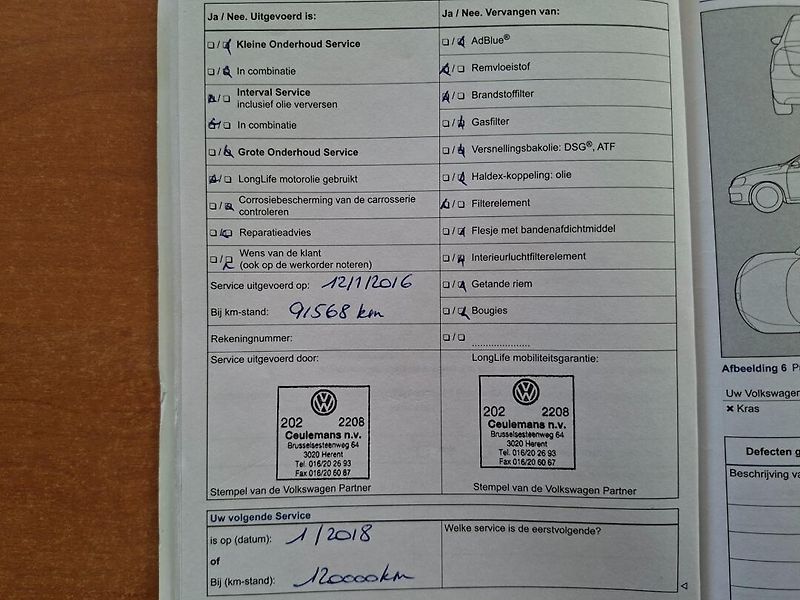 Ja / Nee. Uitgevoerd is:
Kleine Onderhoud Service
In combinatie
Interval Service
inclusief olie verversen
In combinatie
Grote Onderhoud Service
LongLife motorolie gebruikt
Corrosiebescherming van de carrosserie
controleren
Reparatieadvies
Wens van de klant
(ook op de werkorder noteren)
Service uitgevoerd op: 12/1/2016
Bij km-stand: 91568 km
Rekeningnummer:
Service uitgevoerd door:
202 2208
Ceulemans n.v.
Brusselsesteenweg 64
3020 Herent
Tel. 016/20 26 93
Fax 016/20 60 67
Stempel van de Volkswagen Partner
Ja / Nee. Vervangen van:
AdBlue®
Remvloeistof
Brandstoffilter
Gasfilter
Versnellingsbakolie: DSG®, ATF
Haldex-koppeling: olie
Filterelement
Flesje met bandenafdichtmiddel
Interieurluchtfilterelement
Getande riem
Bougies
LongLife mobiliteitsgarantie:
202 2208
Ceulemans n.v.
Brusselsesteenweg 64
3020 Herent
Tel. 016/20 26 93
Fax 016/20 60 67
Stempel van de Volkswagen Partner
Uw volgende Service
is op (datum): 1/2018
of
Bij (km-stand): 120000km
Welke service is de eerstvolgende?
Afbeelding 6
Uw Volkswagen
× Kras
Defecten
Beschrijving